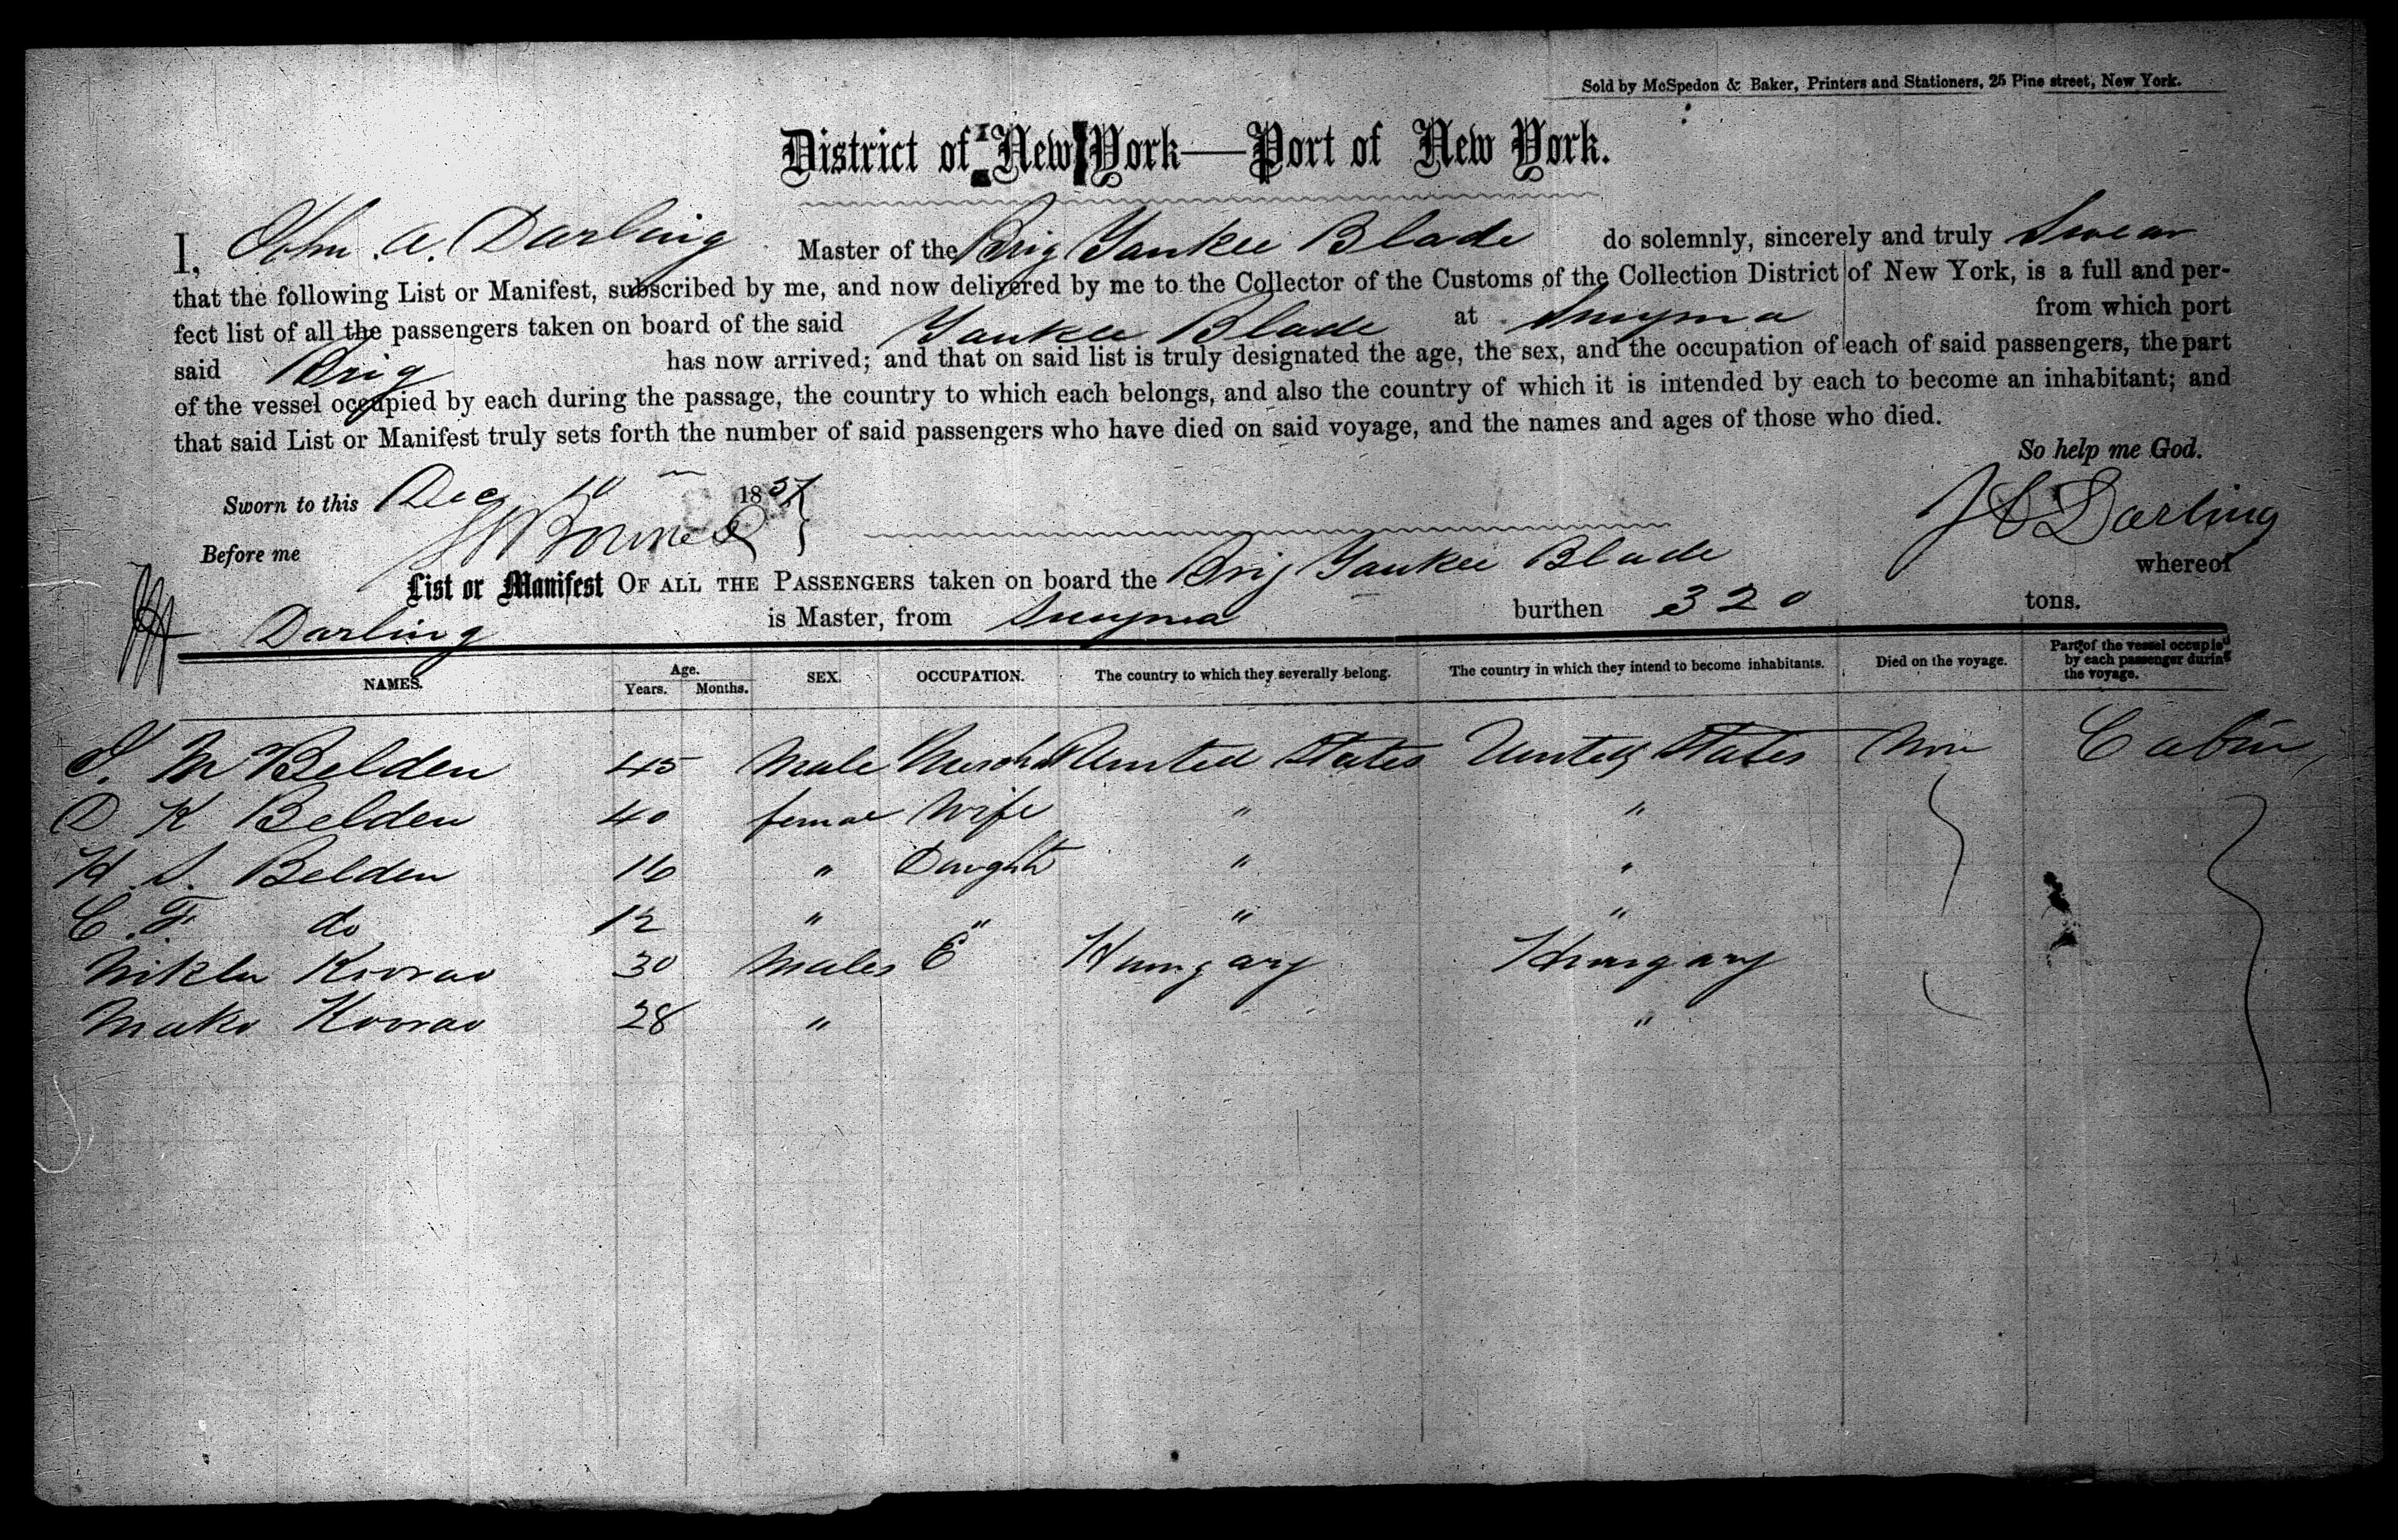 Sold by McSpedon & Baker, Printers and Stationers, 25 Pine street, New York.
District of New York—Port of New York.
I, John A. Darling Master of the Brig Yankee Blade do solemnly, sincerely and truly Swear
that the following List or Manifest, subscribed by me, and now delivered by me to the Collector of the Customs of the Collection District of New York, is a full and per-
fect list of all the passengers taken on board of the said Yankee Blade at Smyrna from which port
said Brig has now arrived; and that on said list is truly designated the age, the sex, and the occupation of each of said passengers, the part
of the vessel occupied by each during the passage, the country to which each belongs, and also the country of which it is intended by each to become an inhabitant; and
that said List or Manifest truly sets forth the number of said passengers who have died on said voyage, and the names and ages of those who died.
So help me God.
Sworn to this Dec 10 1857
J A Darling
Before me
List or Manifest OF ALL THE PASSENGERS taken on board the Brig Yankee Blade whereof
Darling is Master, from Smyrna burthen 320 tons.
NAMES. Age. Years. Months. SEX. OCCUPATION. The country to which they severally belong. The country in which they intend to become inhabitants. Died on the voyage. Part of the vessel occupied by each passenger during the voyage.
M Belden 45 Male Mercht United States United States Non Cabin
D K Belden 40 female Wife " "
H. S. Belden 16 " Daught " "
C. F. do 12 " " " "
30 Males Hungary Hungary
28 " "